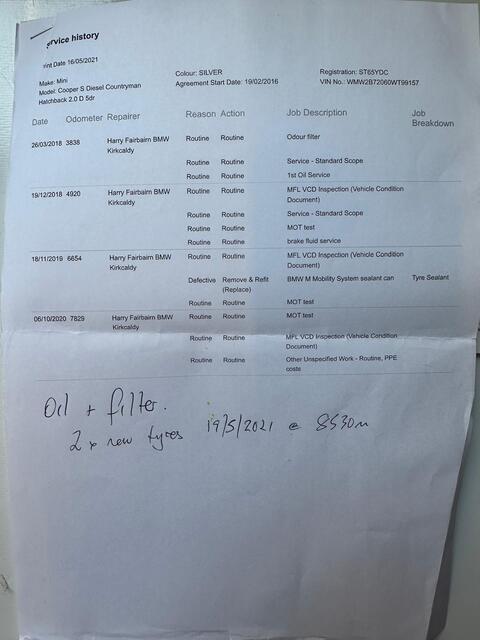 ervice history
rint Date 16/05/2021
Make: Mini
Model: Cooper S Diesel Countryman
Hatchback 2.0 D 5dr
Colour: SILVER
Agreement Start Date: 19/02/2016
Registration: ST65YDC
VIN No.: WMW2B72060WT99157
Date Odometer Repairer Reason Action Job Description Job Breakdown
26/03/2018 3838 Harry Fairbairn BMW Kirkcaldy Routine Routine Odour filter
Routine Routine Service - Standard Scope
Routine Routine 1st Oil Service
19/12/2018 4920 Harry Fairbairn BMW Kirkcaldy Routine Routine MFL VCD Inspection (Vehicle Condition Document)
Routine Routine Service - Standard Scope
Routine Routine MOT test
Routine Routine brake fluid service
18/11/2019 6654 Harry Fairbairn BMW Kirkcaldy Routine Routine MFL VCD Inspection (Vehicle Condition Document)
Defective Remove & Refit (Replace) BMW M Mobility System sealant can Tyre Sealant
Routine Routine MOT test
06/10/2020 7829 Harry Fairbairn BMW Kirkcaldy Routine Routine MOT test
Routine Routine MFL VCD Inspection (Vehicle Condition Document)
Routine Routine Other Unspecified Work - Routine, PPE costs
Oil + filter.
2 x new tyres 19/5/2021 @ 8530m